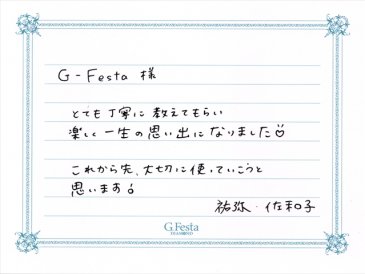 G-Festa 様
とても丁寧に教えてもらい
楽しく一生の思い出になりました
これから先、大切に使っていこうと
思います
祐弥・佐和子
G.Festa
DIAMOND